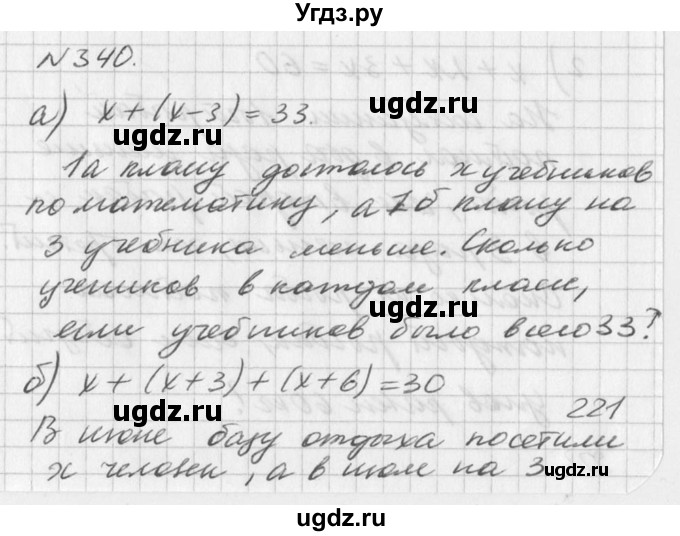 Угдз.ру
N 340.
а) x + (x-3) = 33.
ugdz.ru ugdz.ru
1а классу досталось x учебников
по математику, а 1б классу на
3 учебника меньше. Сколько
учеников в каждом классе,
ugdz.ru ugdz.ru
если учебников было всего 33?
б) x + (x+3) + (x+6) = 30
221
ugdz.ru
В июне базу отдыха посетили
x человек, а в июле на 3
ugdz.ru ugdz.ru